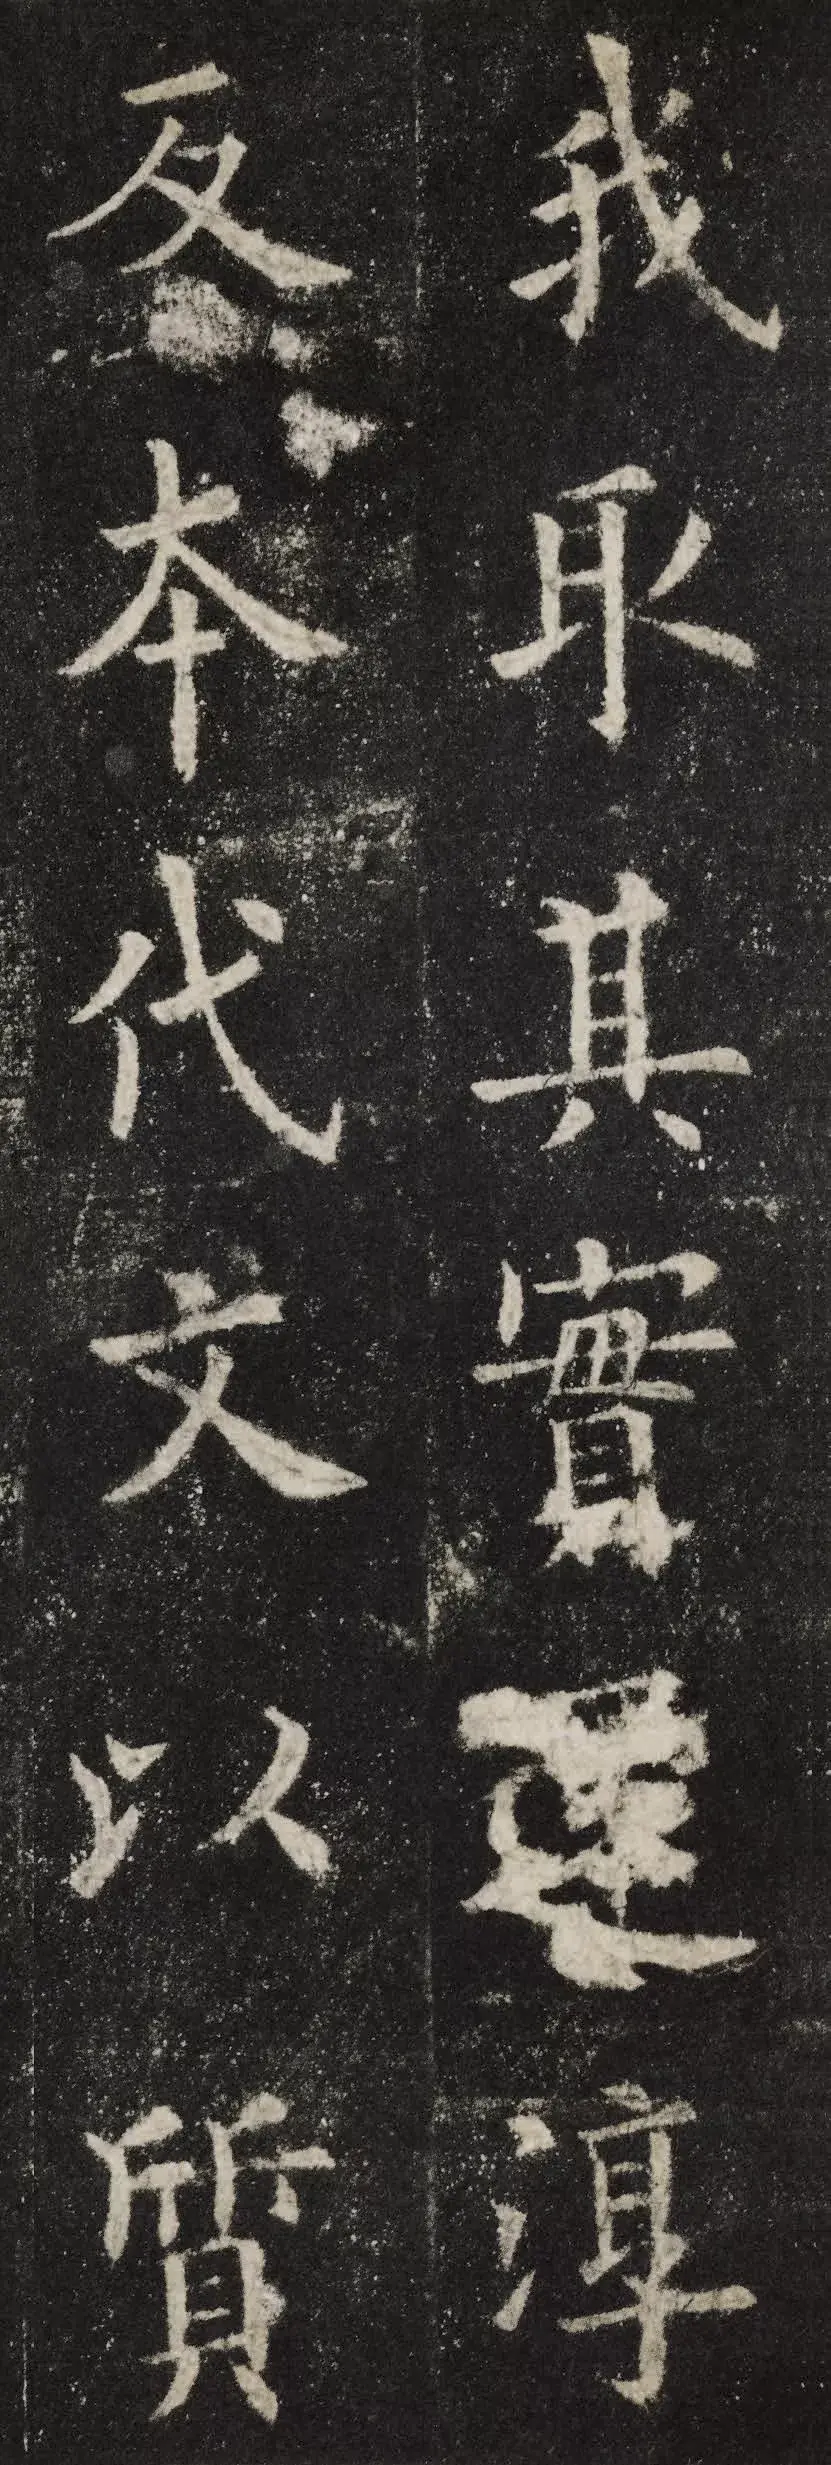 我取其實還淳
反本代文以質